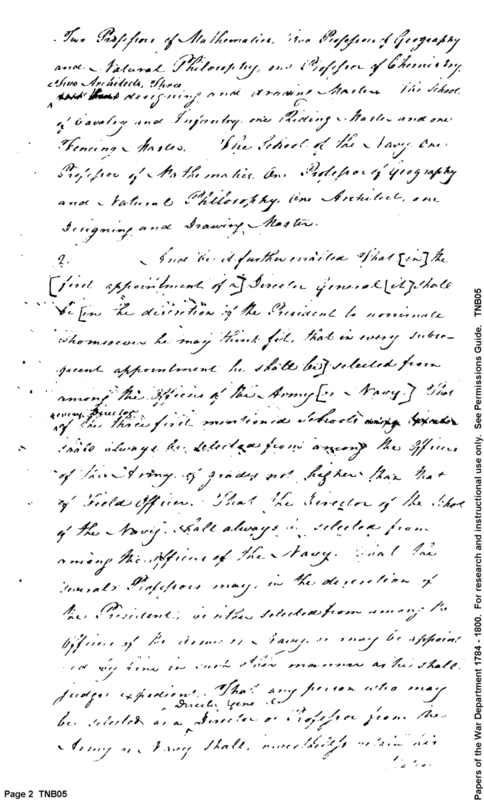 Two Professors of Mathematics, Two Professors of Geography
and Natural Philosophy, one Professor of Chemistry,
Two Architects, Three
designing and drawing Masters The School
of Cavalry and Infantry, one Riding Master and one
Fencing Master. The School of the Navy One
Professor of Mathematics One Professor of Geography
and Natural Philosophy, one Architect, one
Designing and Drawing Master.
2. And be it further enacted That [in] the
[first appointment of a] Director General [it] shall
be [in the discretion of the President to nominate
whomsoever he may think fit, that in every subse-
quent appointment he shall be] selected from
among the officers of the Army [or Navy.] That
every Director
of the three first mentioned Schools
shall always be selected from among the Officers
of the Army of grades not higher than that
of Field Officer. That the Director of the School
of the Navy shall always be selected from
among the officers of the Navy. That the
several Professors may, in the discretion of
the President, be either selected from among the
Officers of the Army or Navy, or may be appoint
ed by him in such other manner as he shall
judge expedient. That any person who may
Director Gene
be selected as a Director or Professor from the
Army or Navy shall, nevertheless retain his
Page 2 TNB05
Papers of the War Department 1784 - 1800. For research and instructional use only. See Permissions Guide. TNB05